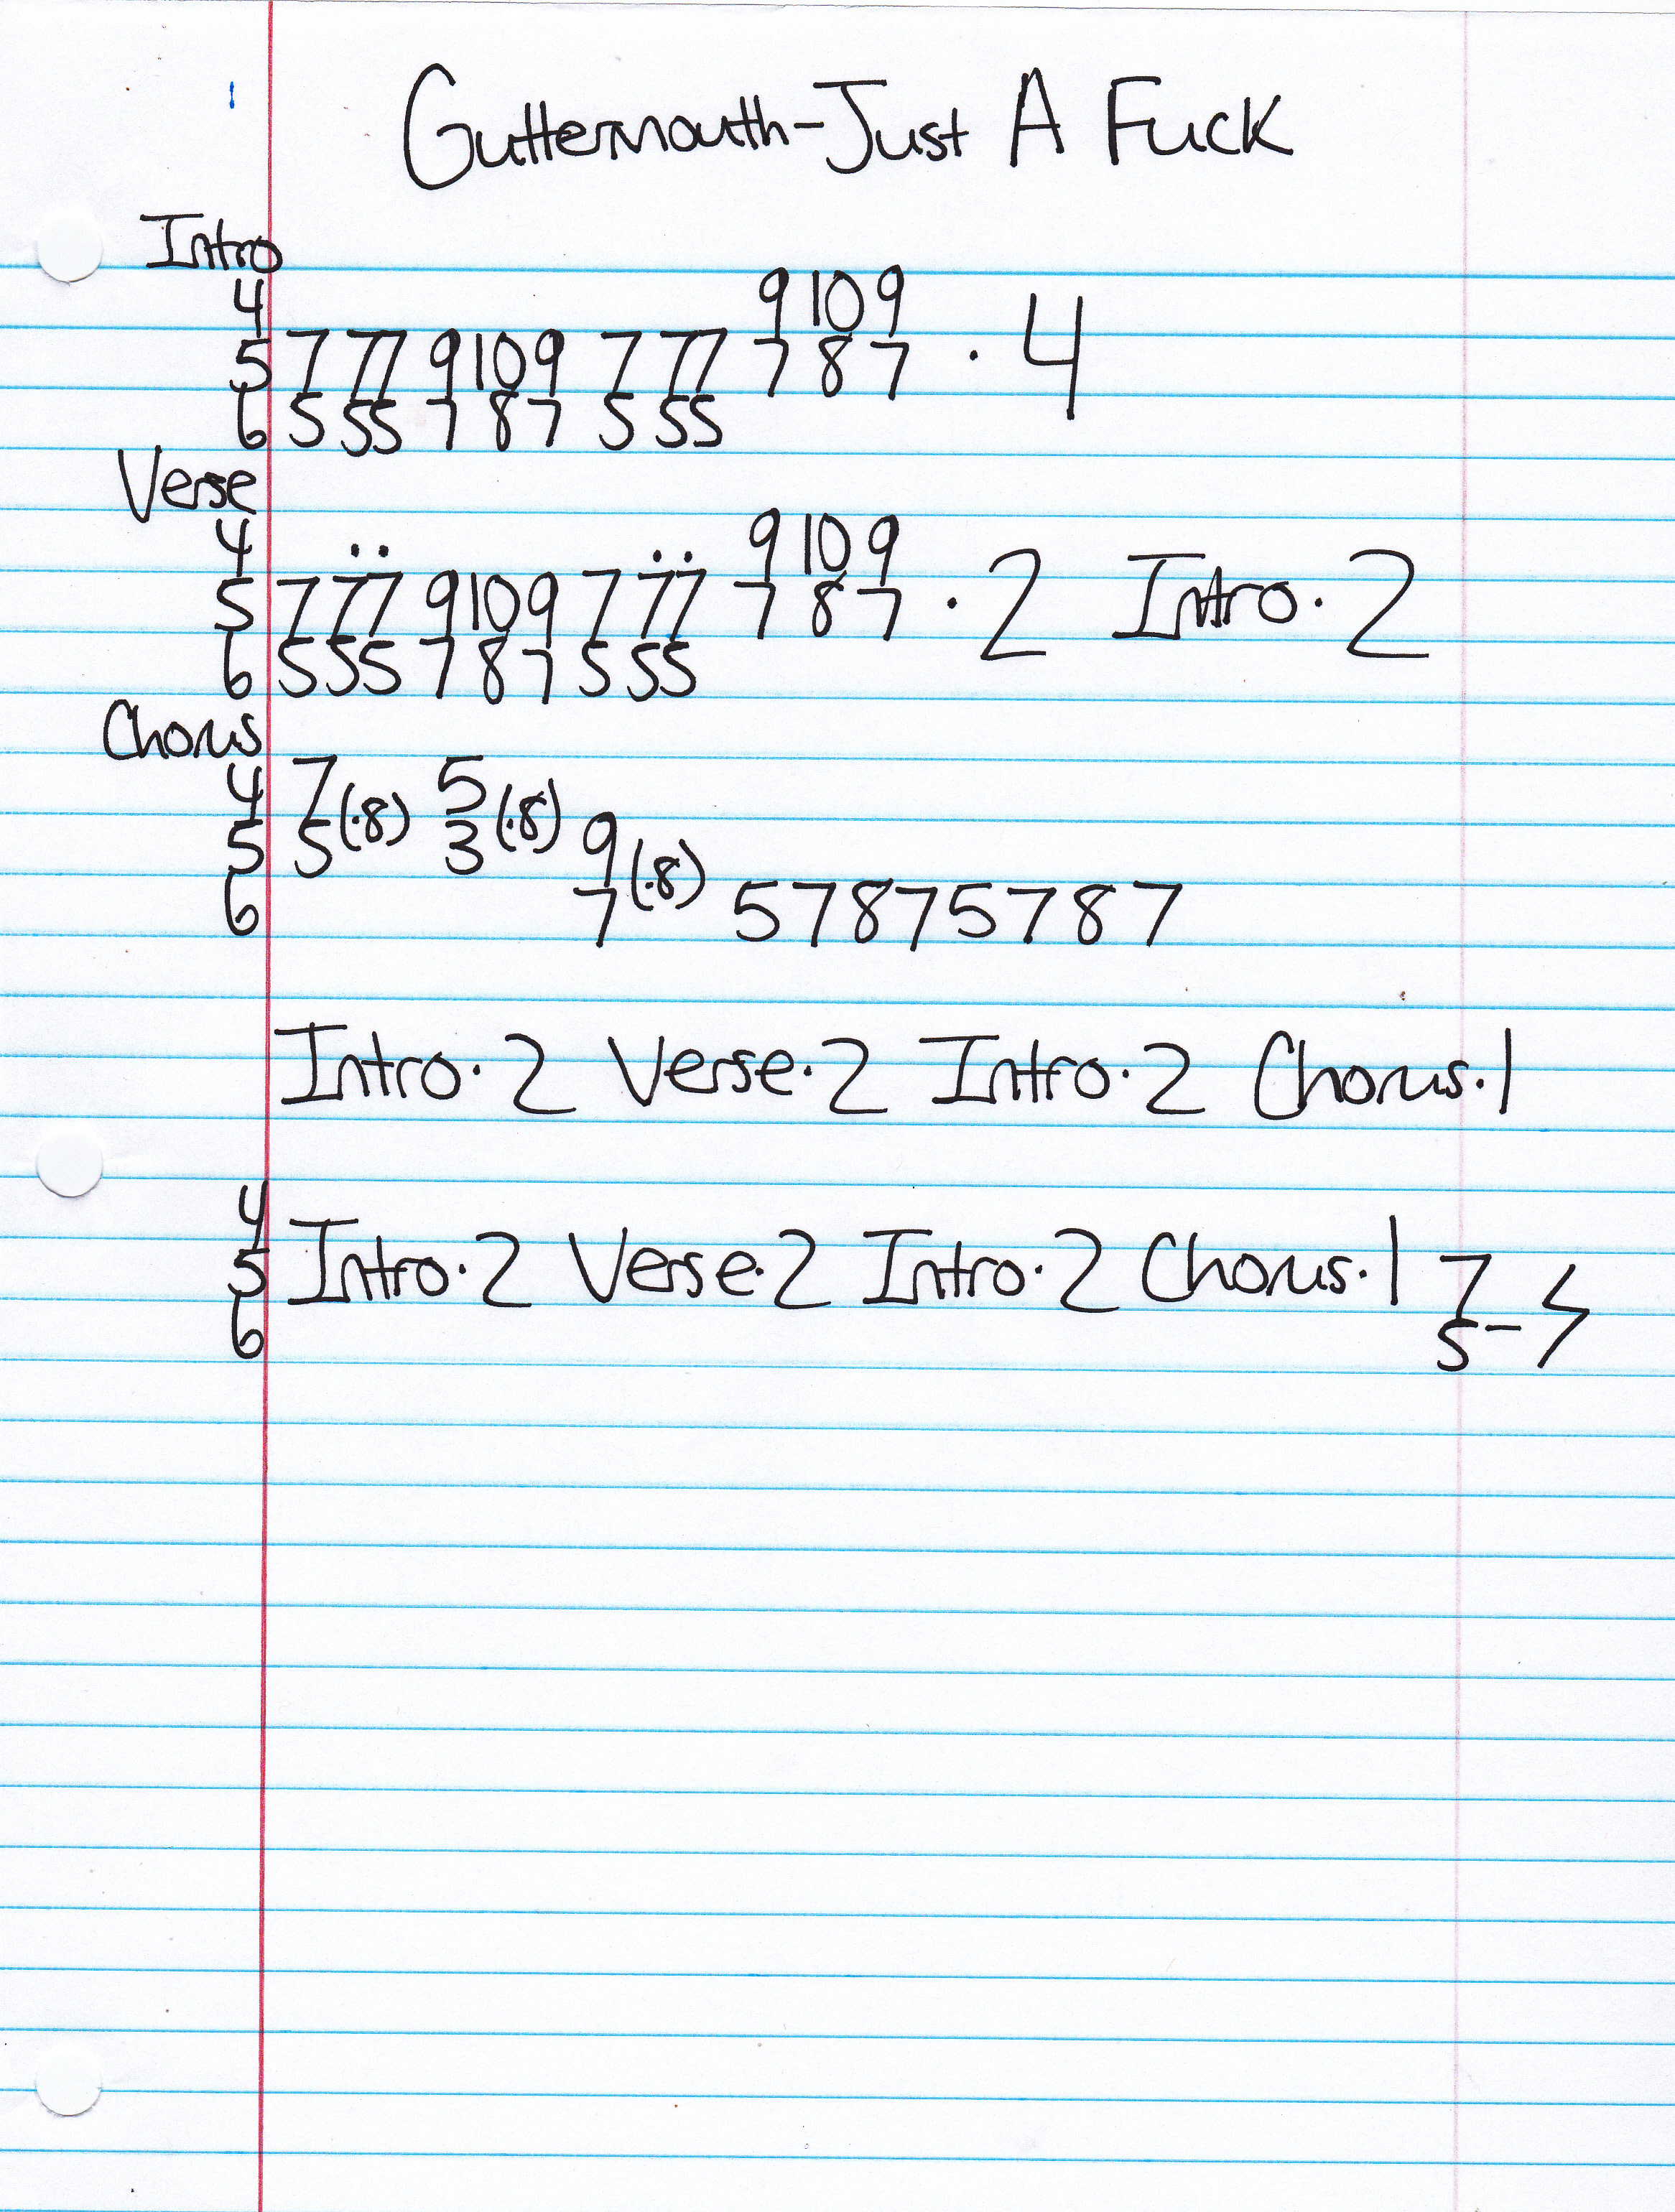 Guttermouth-Just A Fuck
Intro
4 9 10 9
5 7 77 9 10 9 7 77 7 8 7 · 4
6 5 55 7 8 7 5 55
Verse
4 .. .. 9 10 9
5 777 9 10 9 777 7 8 7 · 2 Intro · 2
6 555 7 8 7 5 55
Chorus
4 7 (·8) 5 (·8)
5 5 3 9 (·8)
6 7 5 7 8 7 5 7 8 7
Intro · 2 Verse · 2 Intro · 2 Chorus · 1
4
5 Intro · 2 Verse · 2 Intro · 2 Chorus · 1 7
6 5 –